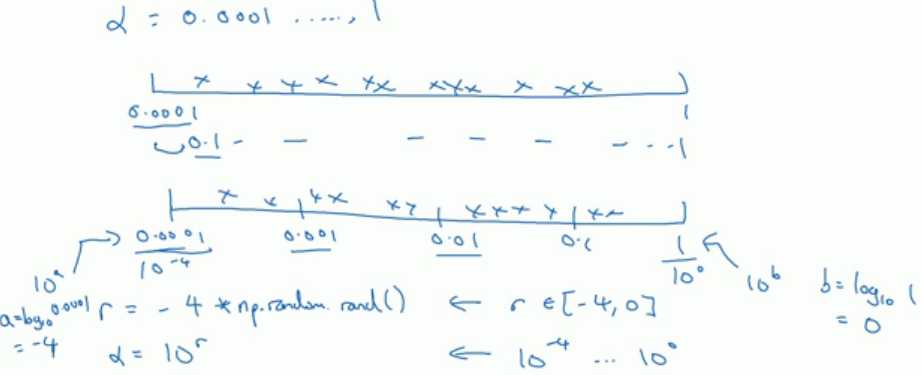 α = 0.0001 ....., 1
0.0001 1
0.1 - - - - - - . . - 1
0.0001 0.001 0.01 0.1 1
10^-4 10^0
10^a 10^b
a=log10 0.0001 r = -4 * np.random.rand() ← r ∈ [-4, 0] b = log10 1
= -4 α = 10^r ← 10^-4 ... 10^0 = 0